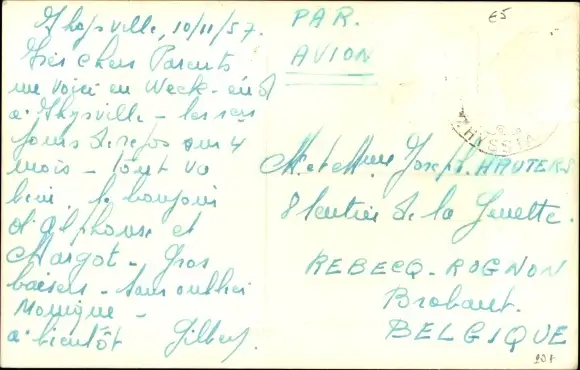 Thysville, 10/11/57.
Très chers Parents
me voici en Week-end
à Thysville - les 1ers
jours de repos sur 4
mois - tout va
bien. le bonjour
d'Alphonse et
Margot - Gros
baisers - sans oublier
Monique -
à bientôt Gilbert
PAR.
AVION
E5
THYSVI
Mr et Mme Joseph. HAUTERS
8 sentier de la Genette.
REBECQ-ROGNON
Brabant.
BELGIQUE